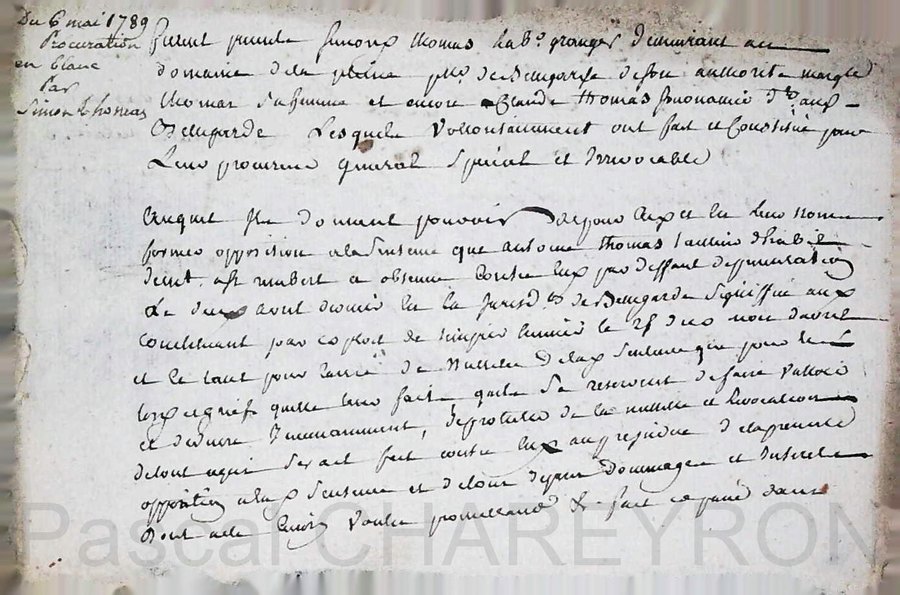 Du 6 mai 1789
Procuration
en blanc
Par
Simon thomas
furent presents Simon thomas lab.r granger demeurant au
domaine dela pleine p.sse de Bellegarde de son authorité margte
thomas sa femme et encore Claude thomas
Bellegarde Lesquels Vollontairement ont fait et Constitué pour
Leur procureur general Special et Irrevocable
Auquel Ils donnent pouvoir de pour Eux et En Leur nom
former opposition a la Sentence que antoine thomas
a obtenue Contre Eux par deffaut de
Le deux avril dernier En La Jurisd.on de Bellegarde Signiffié aux
Constituant par exploit de le 25 du mois davril
et Ce tant pour de Nullitté de la Sentence que pour les
torts et griefs quelle leur fait quils Se reservent de faire Valloir
et deduire protester de la nullitté et
detout ce qui Seroit fait contre Eux au prejudice de la presente
opposition a la Sentence et de tous depens dommages et Interets
Dont acte Voulu promettant & fait et passé dans
Pascal CHAREYRON